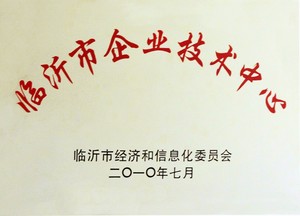 临沂市企业技术中心
临沂市经济和信息化委员会
二〇一〇年七月